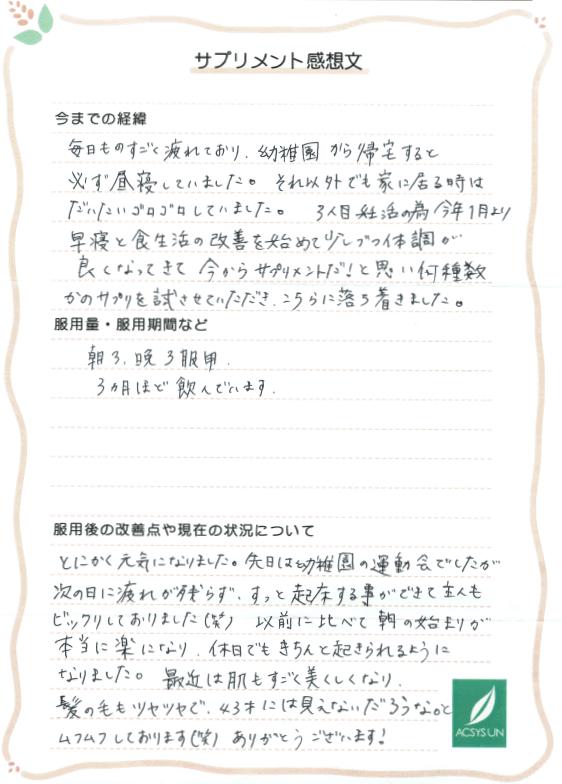 サプリメント感想文
今までの経緯
毎日ものすごく疲れており、幼稚園から帰宅すると
必ず昼寝していました。それ以外でも家に居る時は
だいたいゴロゴロしていました。 3人目妊活の為今年1月より
早寝と食生活の改善を始めて少しづつ体調が
良くなってきて今からサプリメントだ!と思い何種類
かのサプリを試させていただき、こちらに落ち着きました。
服用量・服用期間など
朝3、晩3服用、
3ヵ月ほど飲んでいます、
服用後の改善点や現在の状況について
とにかく元気になりました。先日は幼稚園の運動会でしたが
次の日に疲れが残らず、すっと起床する事ができて主人も
ビックリしておりました(笑) 以前に比べて朝の始まりが
本当に楽になり、休日でもきちんと起きられるように
なりました。 最近は肌もすごく美くしくなり、
髪の毛もツヤツヤで、43才には見えないだろうな。と
ムフムフしております(笑) ありがとうございます!
ACSYSUN